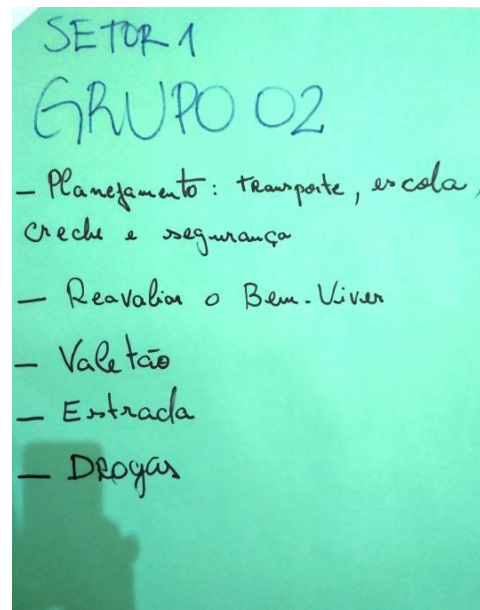 SETOR 1
GRUPO 02
- Planejamento: transporte, escola,
creche e segurança
- Reavaliar o Bem-Viver
- Valetão
- Estrada
- Drogas